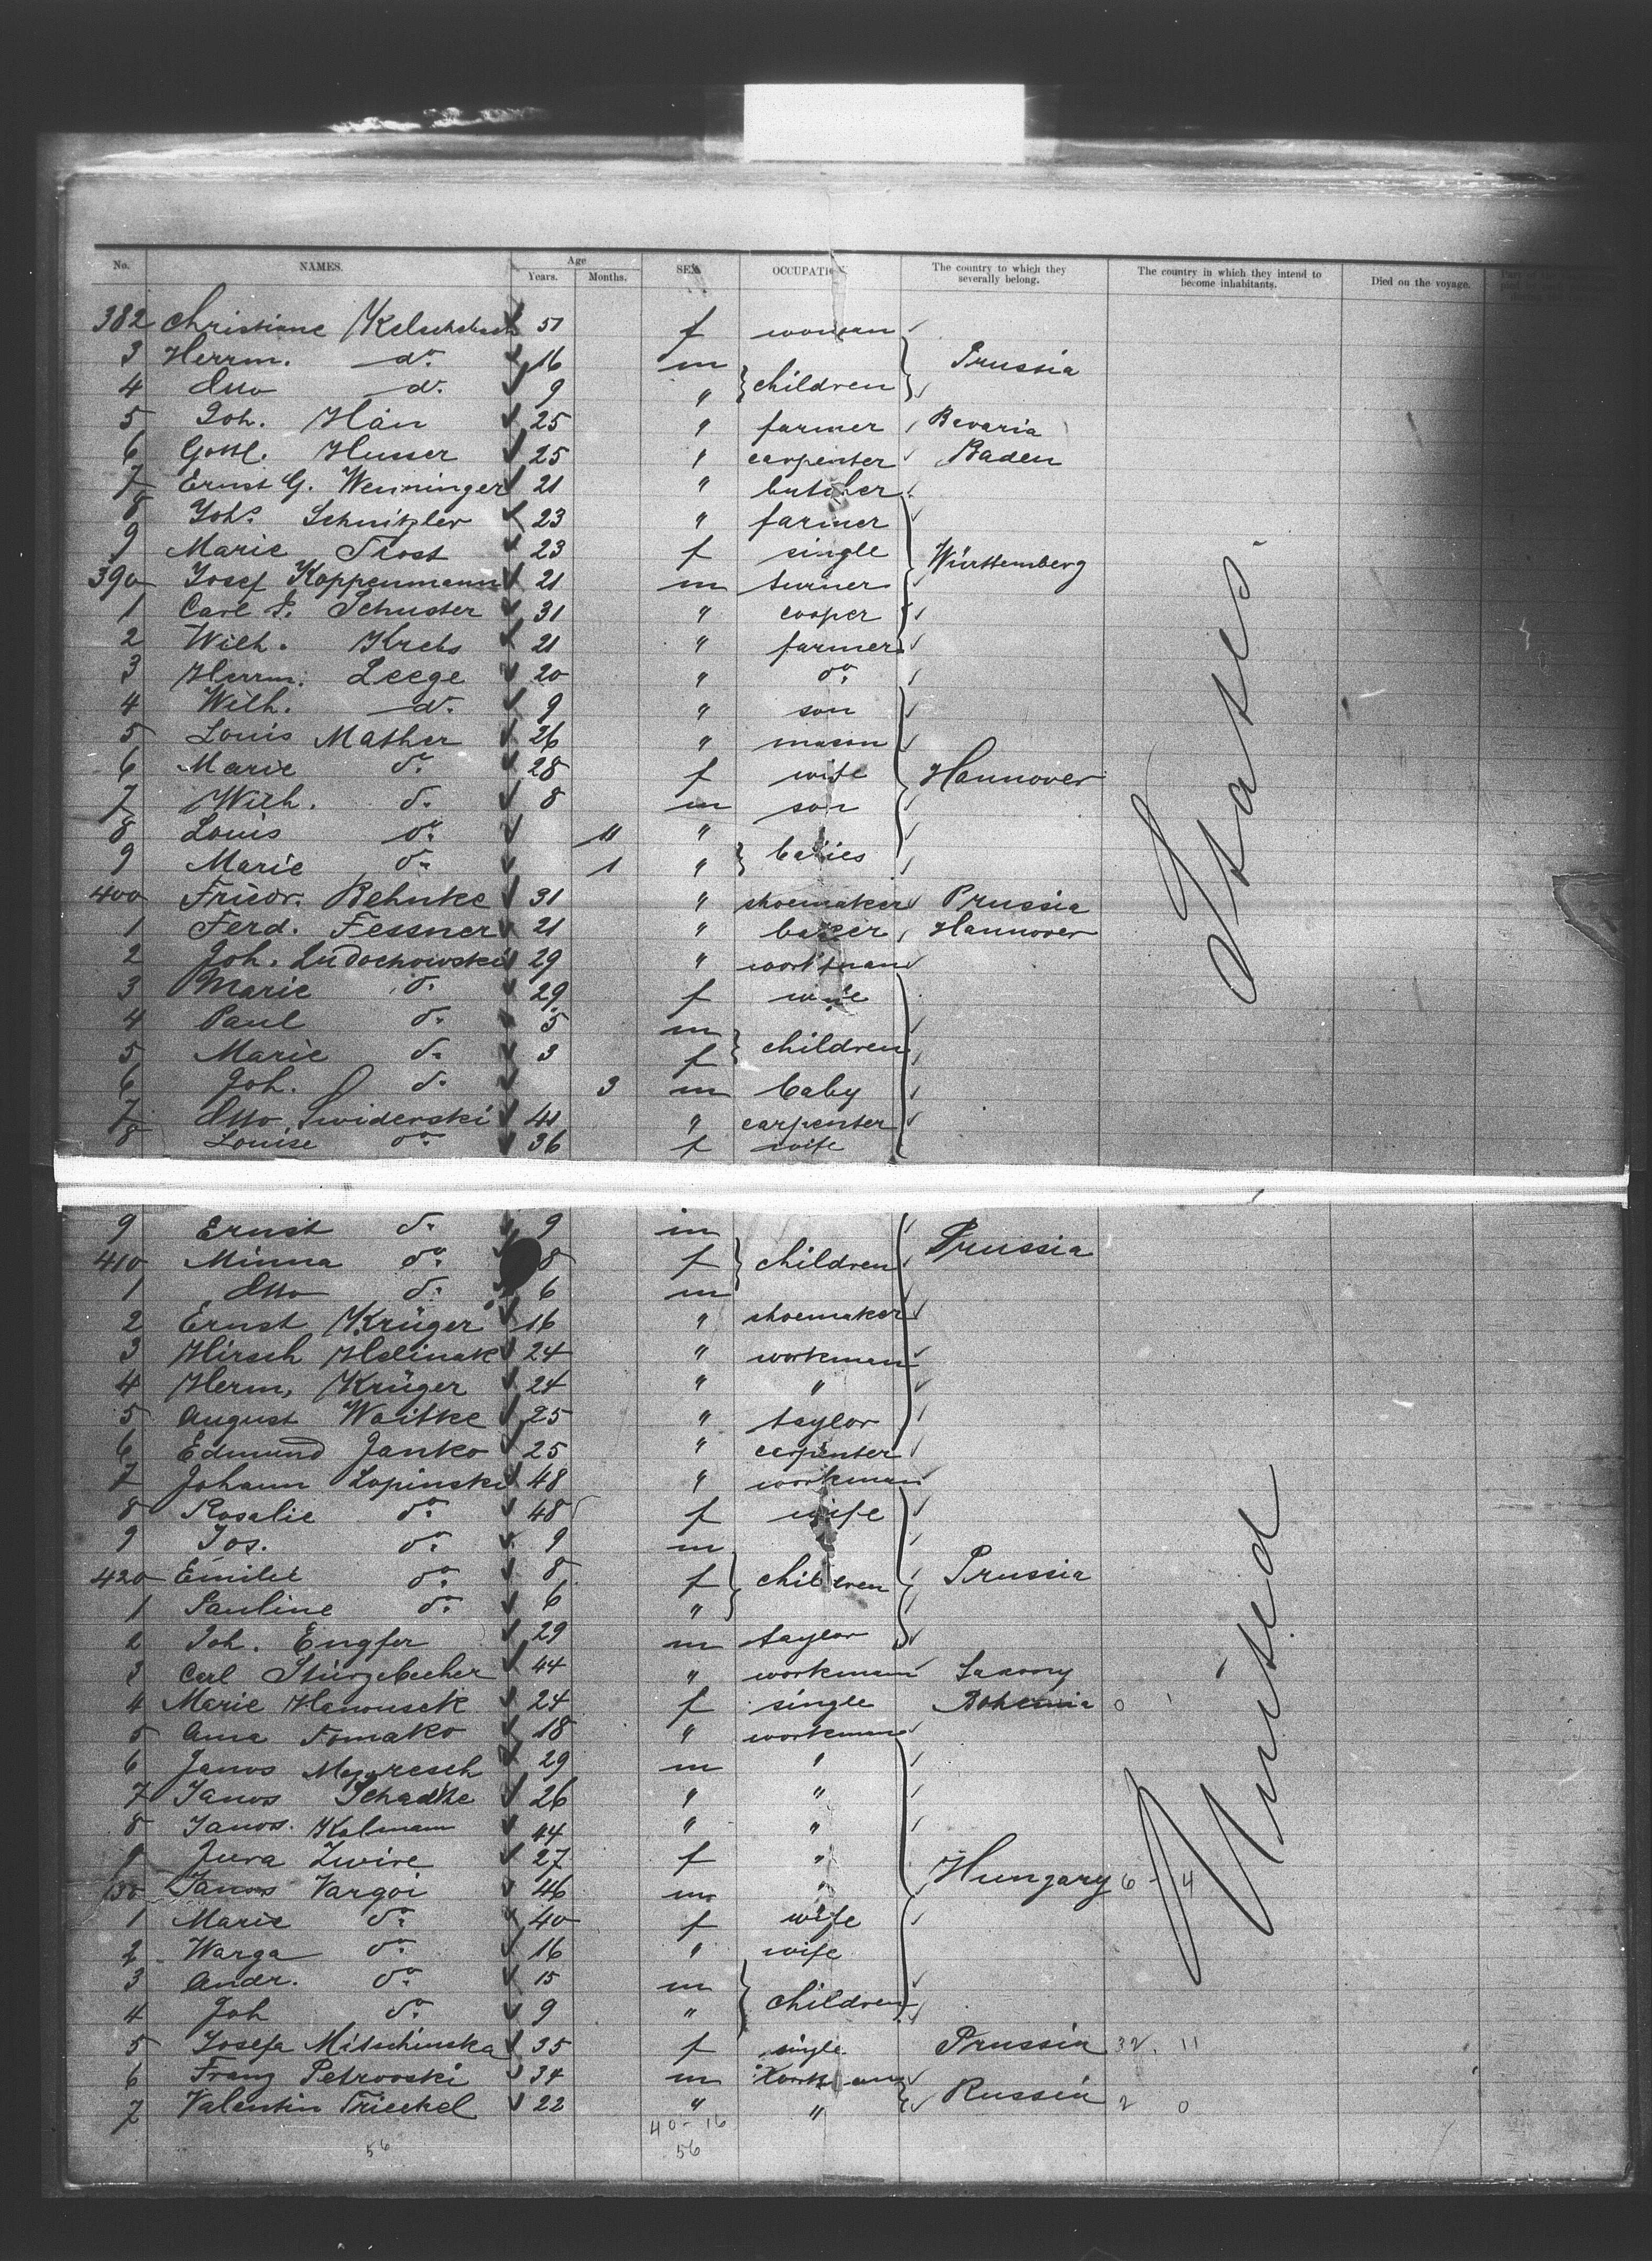 No. NAMES. Age Years. Months. SEX OCCUPATION. The country to which they severally belong. The country in which they intend to become inhabitants. Died on the voyage.
382 Christiane 51 f woman
3 Herrm. do. 16 m Prussia
4 Otto do. 9 " children
5 Joh. Hän 25 " farmer Bavaria
6 Gottl. Husser 25 " carpenter Baden
7 Ernst G. Wenninger 21 " butcher
8 Johs. Schnitzler 23 " farmer
9 Marie Trost 23 f single Württemberg
390 Josef Koppenmann 21 m turner
1 Carl F. Schuster 31 " cooper
2 Wilh. Krebs 21 " farmer
3 Herrm. Leege 20 " do.
4 Wilh. do. 9 " son
5 Louis Mather 26 " mason
6 Marie do. 28 f wife Hannover
7 Wilh. do. 8 m son
8 Louis do. 11 "
9 Marie do. 1 " babies
400 Friedr. Behnke 31 " shoemaker Prussia
1 Ferd. Fessner 21 " baker Hannover
2 Joh. Ludochowski 29 " workman
3 Marie do. 29 f wife
4 Paul do. 5 m
5 Marie do. 3 f children
6 Joh. do. 3 m baby
7 Otto Swiderski 41 " carpenter
8 Louise do. 36 f wife
9 Ernst do. 9 m Prussia
410 Minna do. 8 f children
1 Otto do. 6 m
2 Ernst Krüger 16 " shoemaker
3 Hirsch Helinak 24 " workman
4 Herm. Krüger 24 " "
5 August Woitke 25 " taylor
6 Edmund Janko 25 " carpenter
7 Johann Lopinski 48 " workman
8 Rosalie do. 48 f wife
9 Jos. do. 9 m
420 Emilie do. 8 f children Prussia
1 Pauline do. 6 "
2 Joh. Engfer 29 m taylor
3 Carl Stürzebecher 44 " workman Saxony
4 Marie Hanousek 24 f single Bohemia 0 1
5 Anna Tomako 18 " workman
6 Janos 29 m "
7 Janos Schadke 26 " "
8 Janos Kalmann 44 " "
9 Jura Zwire 27 f "
430 Janos Vargoi 46 m " Hungary 6 - 4
1 Marie do. 40 f wife
2 Warga do. 16 " wife
3 Andr. do. 15 m
4 Joh do. 9 " children
5 Josefa Mitschinska 35 f single Prussia 32. 11
6 Franz Petrovski 34 m workman
7 Valentin Trieckel 22 " " Russia 2 0
40 - 16
56 56
United States.